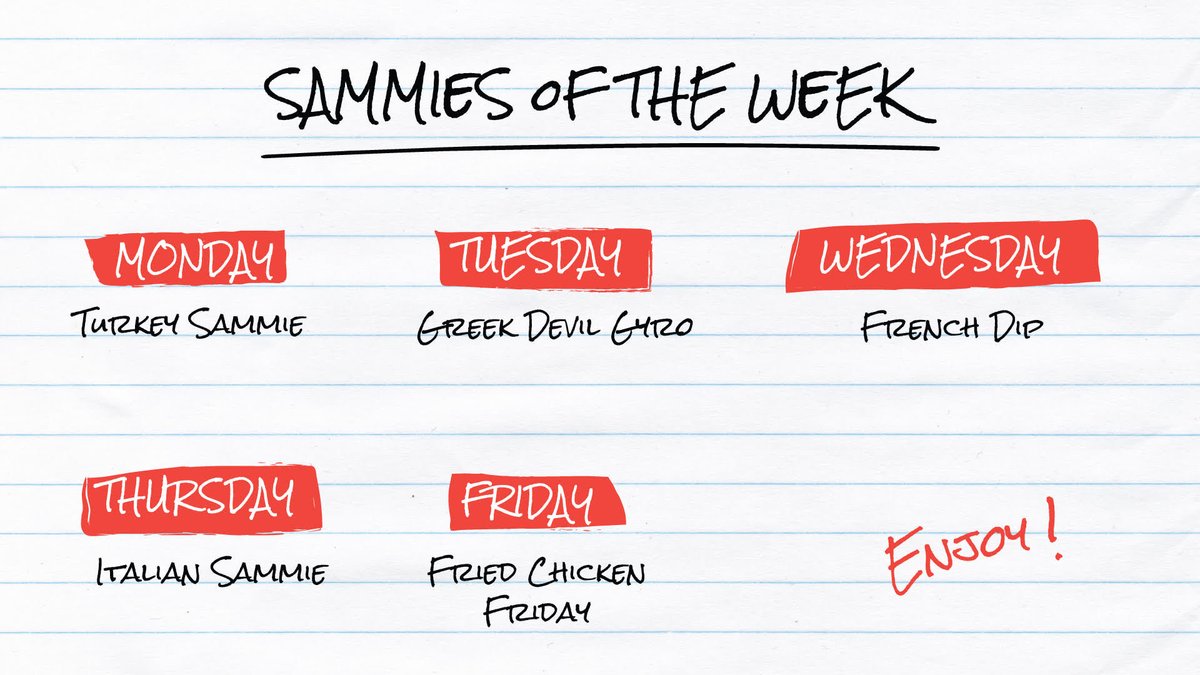 SAMMIES OF THE WEEK
MONDAY
TURKEY SAMMIE
TUESDAY
GREEK DEVIL GYRO
WEDNESDAY
FRENCH DIP
THURSDAY
ITALIAN SAMMIE
FRIDAY
FRIED CHICKEN
FRIDAY
ENJOY!